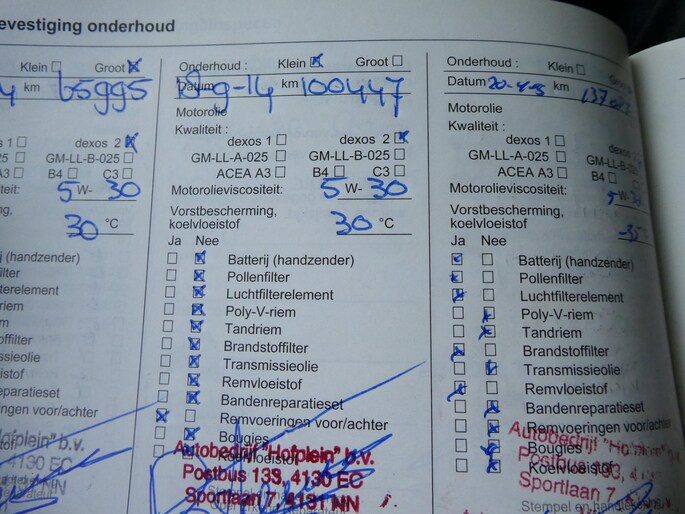 evestiging onderhoud
Klein Groot
km 65995
s 1 dexos 2
-025 GM-LL-B-025
A3 B4 C3
teit: 5 W- 30
ng,
30 °C
ij (handzender)
ilter
lterelement
riem
m
toffilter
ssieolie
stof
eparatieset
ringen voor/achter
Hofplein" b.v.
4130 EC
Onderhoud : Klein Groot
Datum 18-9-14 km 100447
Motorolie
Kwaliteit :
dexos 1 dexos 2
GM-LL-A-025 GM-LL-B-025
ACEA A3 B4 C3
Motorolieviscositeit: 5 W- 30
Vorstbescherming,
koelvloeistof 30 °C
Ja Nee
Batterij (handzender)
Pollenfilter
Luchtfilterelement
Poly-V-riem
Tandriem
Brandstoffilter
Transmissieolie
Remvloeistof
Bandenreparatieset
Remvoeringen voor/achter
Bougies
Koelvloeistof
Autobedrijf "Hofplein" b.v.
Postbus 133, 4130 EC
Sportlaan 7, 4131 NN
Onderhoud : Klein
Datum km
Motorolie
Kwaliteit :
dexos 1 dexos 2
GM-LL-A-025 GM-LL-B-025
ACEA A3 B4 C3
Motorolieviscositeit: 5 W- 30
Vorstbescherming,
koelvloeistof -35
Ja Nee
Batterij (handzender)
Pollenfilter
Luchtfilterelement
Poly-V-riem
Tandriem
Brandstoffilter
Transmissieolie
Remvloeistof
Bandenreparatieset
Remvoeringen voor/achter
Bougies
Koelvloeistof
Autobedrijf "Hofplein"
Postbus 133,
Sportlaan 7,
Stempel en